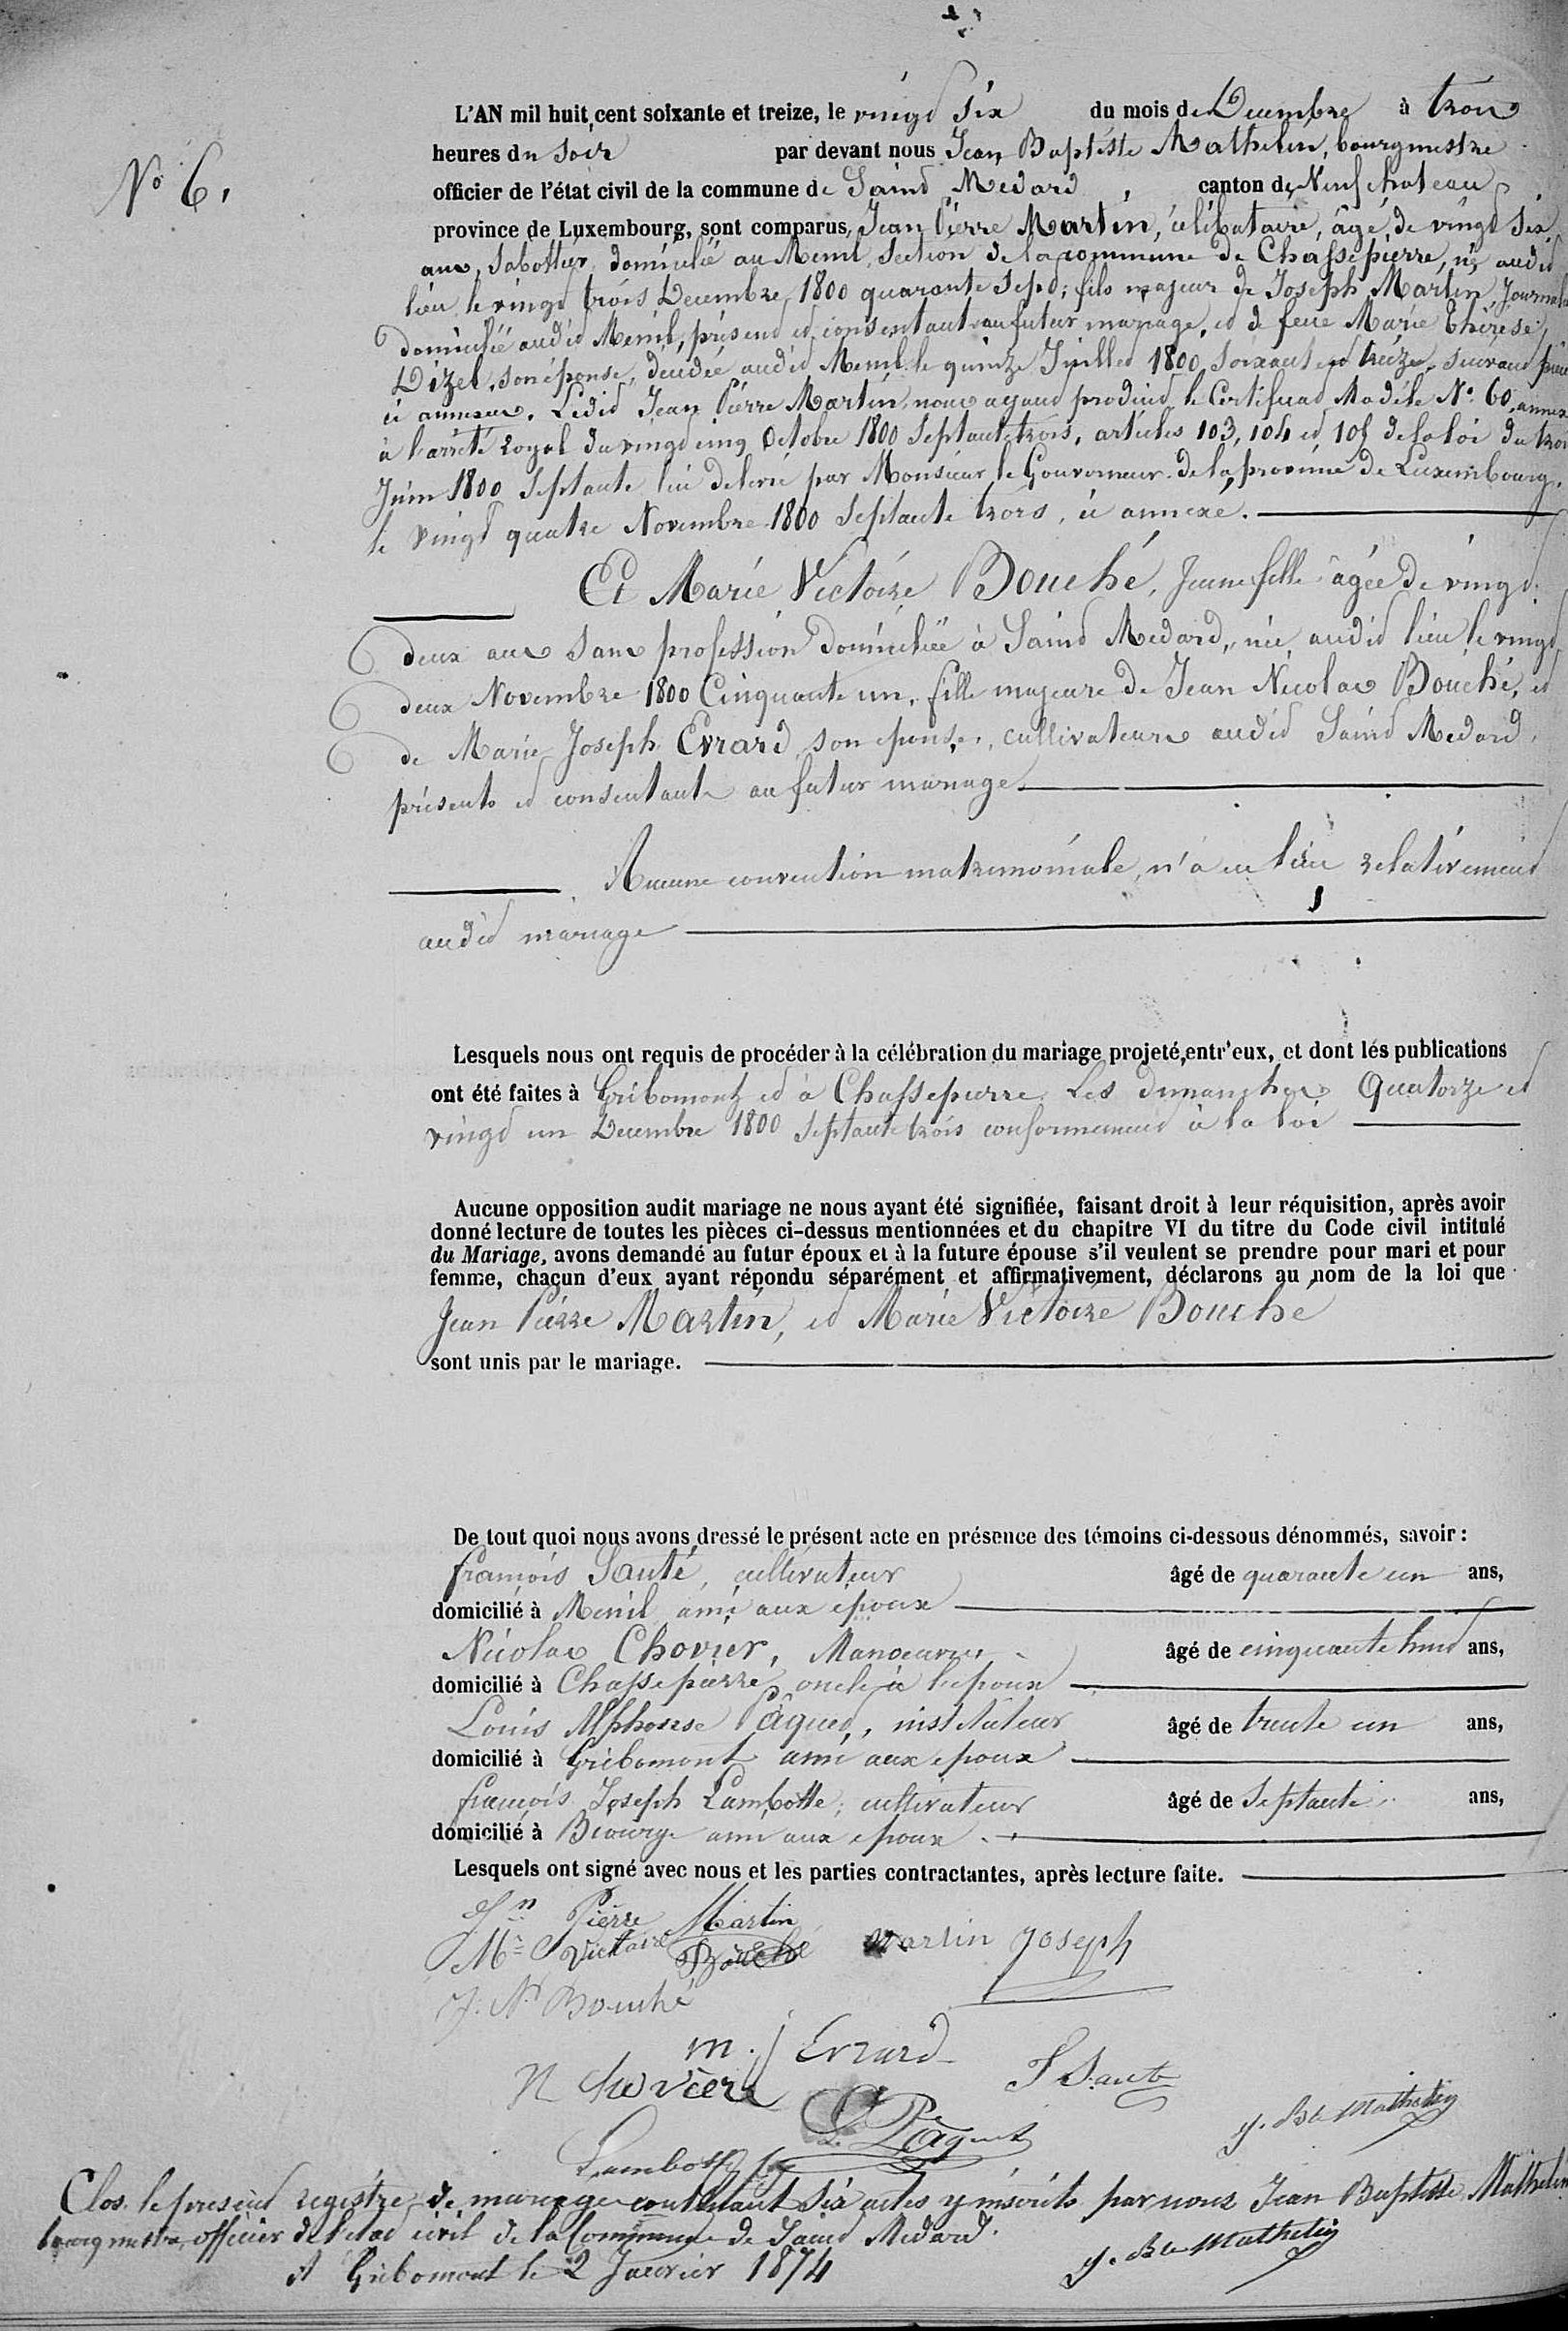 L'AN mil huit cent soixante et treize, le vingt six du mois de Decembre à trois
N° 6.
heures du soir par devant nous Jean Baptiste Mathelin, bourgmestre
officier de l'état civil de la commune de Saint Medard, canton de Neufchateau,
province de Luxembourg, sont comparus, Jean Pierre Martin, célibataire, âgé de vingt six
ans, Sabottier, domicilié au Menil, Section de la commune de Chassepierre, né audit
lieu le vingt trois Decembre 1800 quarante sept; fils majeur de Joseph Martin, Journalier
domicilié audit Menil, présent et consentant au futur mariage, et de feue Marie Thérèse
Dizet, son épouse, décédée audit Menil le quinze Juillet 1800 soixante et treize, suivant pièce
ci annexée. Ledit Jean Pierre Martin, nous ayant produit le Certificat Modèle N° 60, annexé
à l'arrêté royal du vingt cinq Octobre 1800 Septante trois, articles 103, 104 et 105 de la loi du trois
Juin 1800 Septante lui delivré par Monsieur le Gouverneur de la province de Luxembourg,
le vingt quatre Novembre 1800 Septante trois, ci annexé.
Et Marie Victoire Bouché, Jeune fille âgée de vingt
deux ans sans profession domiciliée à Saint Medard, née audit lieu le vingt
deux Novembre 1800 Cinquante un, fille majeure de Jean Nicolas Bouché, et
de Marie Joseph Evrard son épouse, cultivateurs audit Saint Medard,
présents et consentants au futur mariage
Aucune convention matrimoniale, n'a eu lieu relativement
audit mariage
Lesquels nous ont requis de procéder à la célébration du mariage projeté entr'eux, et dont les publications
ont été faites à Gribomont et à Chassepierre Les dimanches Quatorze et
vingt un Decembre 1800 Septante trois conformement à la loi
Aucune opposition audit mariage ne nous ayant été signifiée, faisant droit à leur réquisition, après avoir
donné lecture de toutes les pièces ci-dessus mentionnées et du chapitre VI du titre du Code civil intitulé
du Mariage, avons demandé au futur époux et à la future épouse s'il veulent se prendre pour mari et pour
femme, chaçun d'eux ayant répondu séparément et affirmativement, déclarons au nom de la loi que
Jean Pierre Martin, et Marie Victoire Bouché
sont unis par le mariage.
De tout quoi nous avons dressé le présent acte en présence des témoins ci-dessous dénommés, savoir :
françois Santé, cultivateur âgé de quarante un ans,
domicilié à Menil ami aux époux
Nicolas Chovier, Manoeuvre âgé de cinquante huit ans,
domicilié à Chassepierre, oncle à l'epoux
Louis Alphonse Pâquet, instituteur âgé de trente un ans,
domicilié à Gribomont ami aux epoux
françois Joseph Lambotte, cultivateur âgé de Septante ans,
domicilié à Biourge ami aux epoux
Lesquels ont signé avec nous et les parties contractantes, après lecture faite.
Jn Pierre Martin
Me Victoire Bouché Martin Joseph
J. N. Bouché
m. j Evrard
N Chovier F Santé
L. Pâquet J. Bte Mathelin
Lambotte
Clos le present registre de mariage contenant six actes y inscrits par nous Jean Baptiste Mathelin
bourgmestre officier de l'etat civil de la Commune de Saint Medard.
A Gribomont le 2 Janvier 1874 J. Bte Mathelin